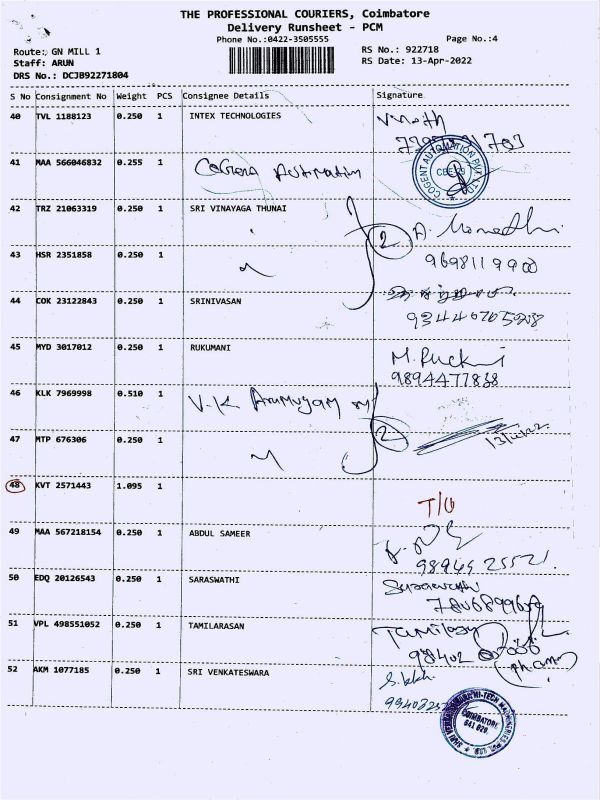 THE PROFESSIONAL COURIERS, Coimbatore
Delivery Runsheet - PCM
Phone No.:0422-3505555
Page No.:4
Route: GN MILL 1
RS No.: 922718
Staff: ARUN
RS Date: 13-Apr-2022
DRS No.: DCJB92271804
S No Consignment No Weight PCS Consignee Details Signature
40 TVL 1188123 0.250 1 INTEX TECHNOLOGIES
41 MAA 566046832 0.255 1
COGENT AUTOMATION PVT LTD
CBE
42 TRZ 21063319 0.250 1 SRI VINAYAGA THUNAI
2
43 HSR 2351858 0.250 1
9698119900
44 COK 23122843 0.250 1 SRINIVASAN
45 MYD 3017012 0.250 1 RUKUMANI
9894477868
46 KLK 7969998 0.510 1 V.K.
47 MTP 676306 0.250 1
2
48 KVT 2571443 1.095 1
T/O
49 MAA 567218154 0.250 1 ABDUL SAMEER
9894525521
50 EDQ 20126543 0.250 1 SARASWATHI
51 VPL 498551052 0.250 1 TAMILARASAN
52 AKM 1077185 0.250 1 SRI VENKATESWARA
COIMBATORE
641 029